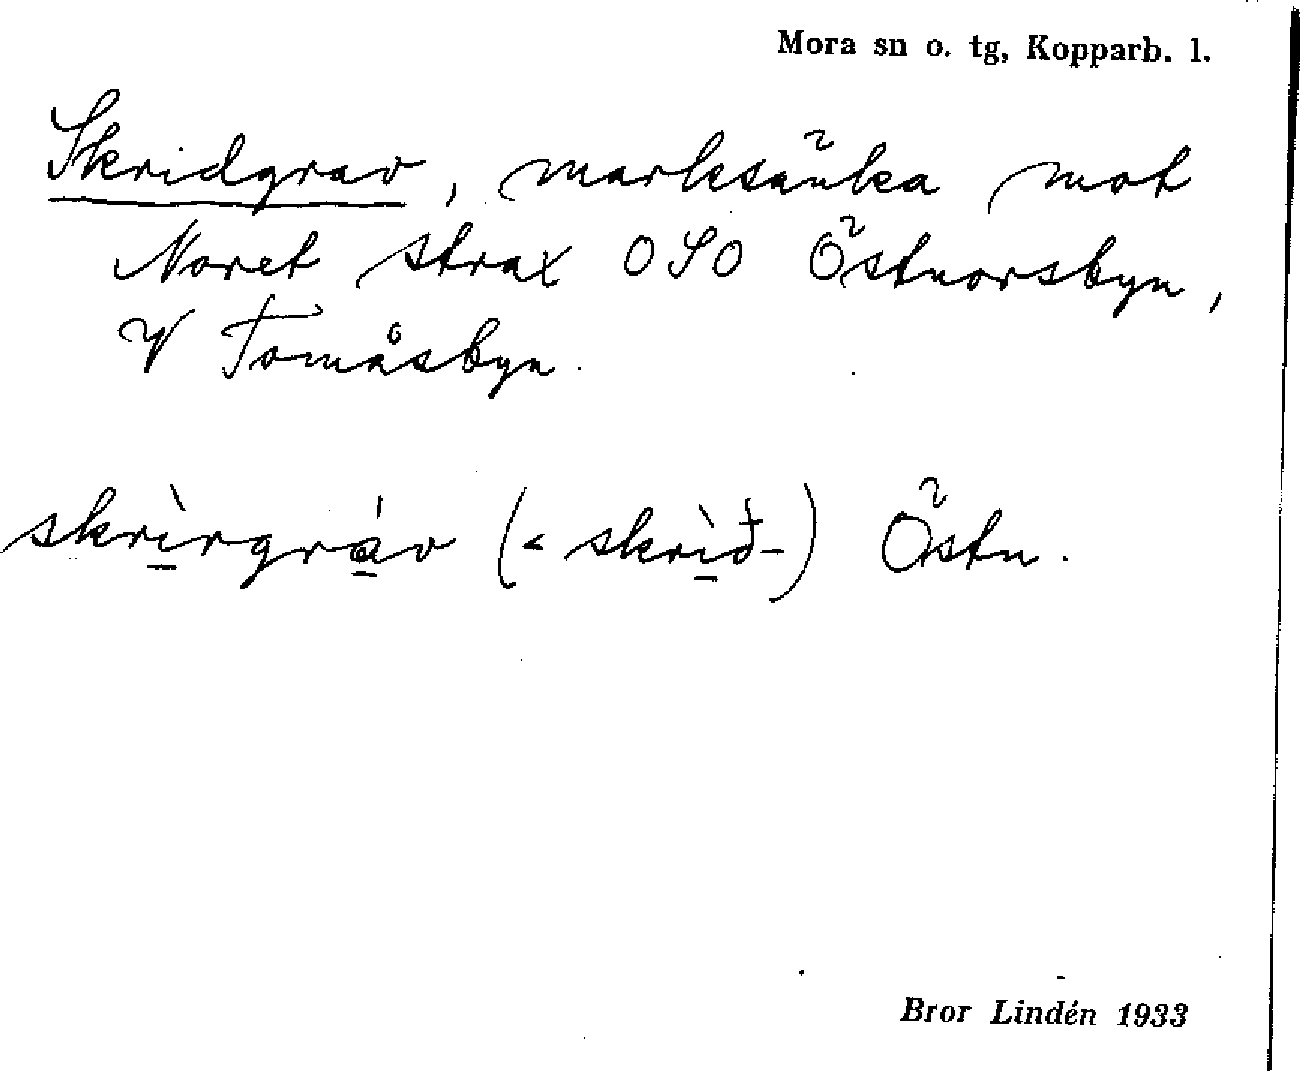 Mora sn o. tg, Kopparb. l.
Skridgrav, marksänka mot
Noret strax OSO Östnorsbyn,
V Tomåsbyn.
skrìrgráv (< skrìð-) Östn.
Bror Lindén 1933